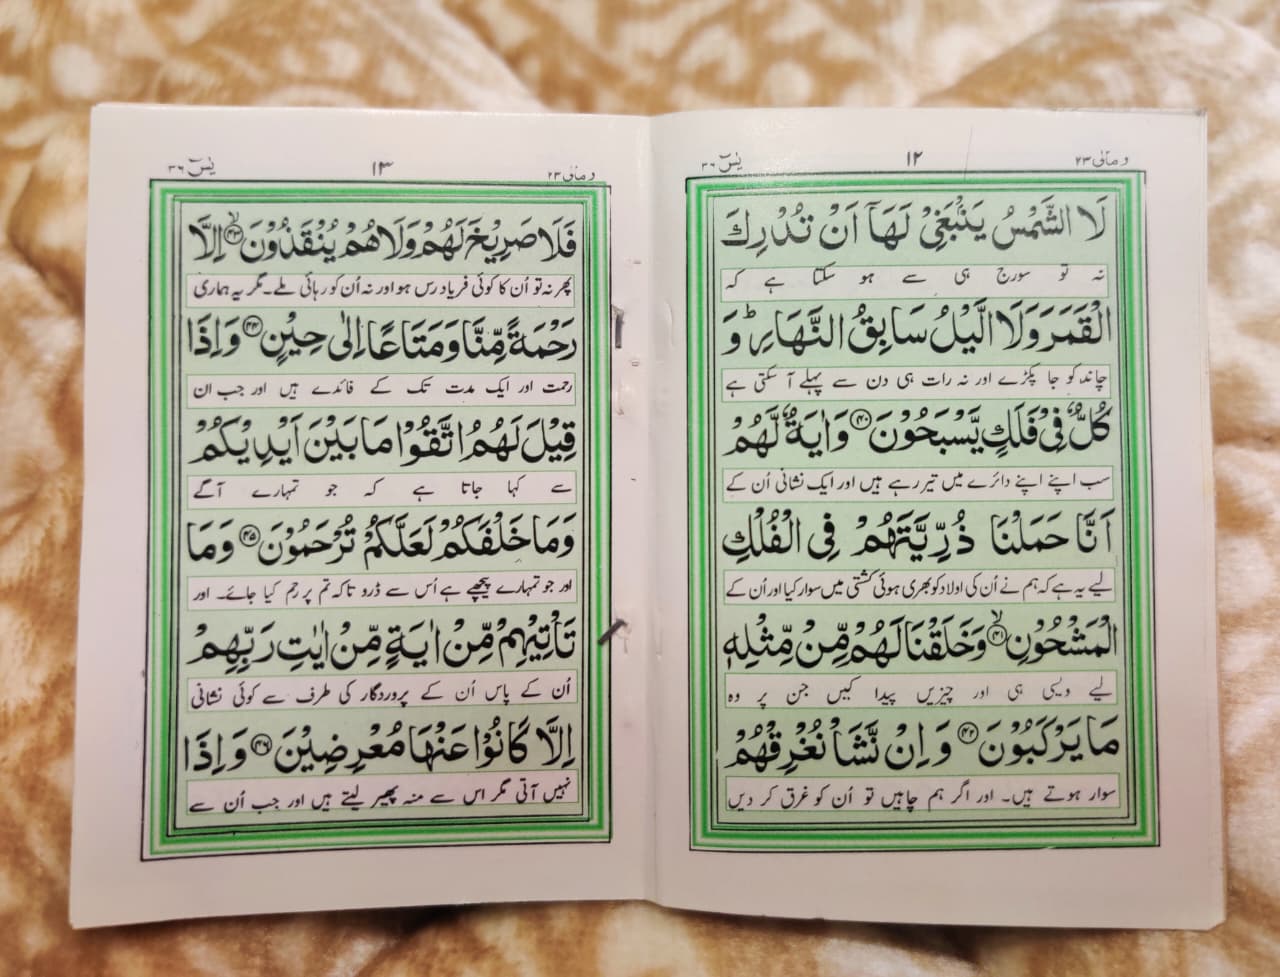 ومآلی ۲۳
۱۲
یٰسٓ ۳۶
لَا الشَّمْسُ يَنْۢبَغِيْ لَهَاۤ اَنْ تُدْرِكَ
نہ تو سورج ہی سے ہو سکتا ہے کہ
الْقَمَرَ وَلَا الَّيْلُ سَابِقُ النَّهَارِ ؕ وَ
چاند کو جا پکڑے اور نہ رات ہی دن سے پہلے آ سکتی ہے
كُلٌّ فِيْ فَلَكٍ يَّسْبَحُوْنَ ﴿۴۰﴾ وَاٰيَةٌ لَّهُمْ
سب اپنے اپنے دائرے میں تیر رہے ہیں اور ایک نشانی اُن کے
اَنَّا حَمَلْنَا ذُرِّيَّتَهُمْ فِي الْفُلْكِ
لیے یہ ہے کہ ہم نے اُن کی اولاد کو بھری ہوئی کشتی میں سوار کیا اور اُن کے
الْمَشْحُوْنِ ﴿۴۱﴾ۙ وَخَلَقْنَا لَهُمْ مِّنْ مِّثْلِهٖ
لیے ویسی ہی اور چیزیں پیدا کیں جن پر وہ
مَا يَرْكَبُوْنَ ﴿۴۲﴾ وَاِنْ نَّشَاْ نُغْرِقْهُمْ
سوار ہوتے ہیں۔ اور اگر ہم چاہیں تو اُن کو غرق کر دیں
ومآلی ۲۳
۱۳
یٰسٓ ۳۶
فَلَا صَرِيْخَ لَهُمْ وَلَا هُمْ يُنْقَذُوْنَ ﴿۴۳﴾ۙ اِلَّا
پھر نہ تو اُن کا کوئی فریاد رس ہو اور نہ اُن کو رہائی ملے۔ مگر یہ ہماری
رَحْمَةً مِّنَّا وَمَتَاعًا اِلٰى حِيْنٍ ﴿۴۴﴾ وَاِذَا
رحمت اور ایک مدت تک کے فائدے ہیں اور جب ان
قِيْلَ لَهُمُ اتَّقُوْا مَا بَيْنَ اَيْدِيْكُمْ
سے کہا جاتا ہے کہ جو تمہارے آگے
وَمَا خَلْفَكُمْ لَعَلَّكُمْ تُرْحَمُوْنَ ﴿۴۵﴾ وَمَا
اور جو تمہارے پیچھے ہے اُس سے ڈرو تاکہ تم پر رحم کیا جائے۔ اور
تَاْتِيْهِمْ مِّنْ اٰيَةٍ مِّنْ اٰيٰتِ رَبِّهِمْ
اُن کے پاس اُن کے پروردگار کی طرف سے کوئی نشانی
اِلَّا كَانُوْا عَنْهَا مُعْرِضِيْنَ ﴿۴۶﴾ وَاِذَا
نہیں آتی مگر اس سے منہ پھیر لیتے ہیں اور جب اُن سے